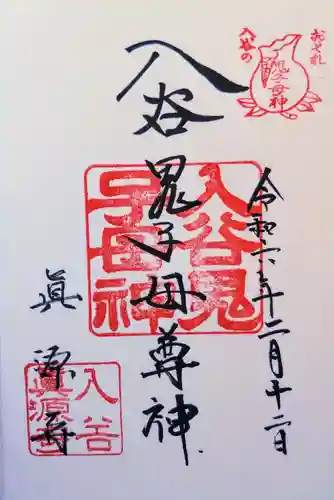 おそれ
入谷の
鬼子母神
令和六年十二月十二日
入谷
鬼子母尊神
入谷鬼
子母神
眞源寺
入谷
眞源寺